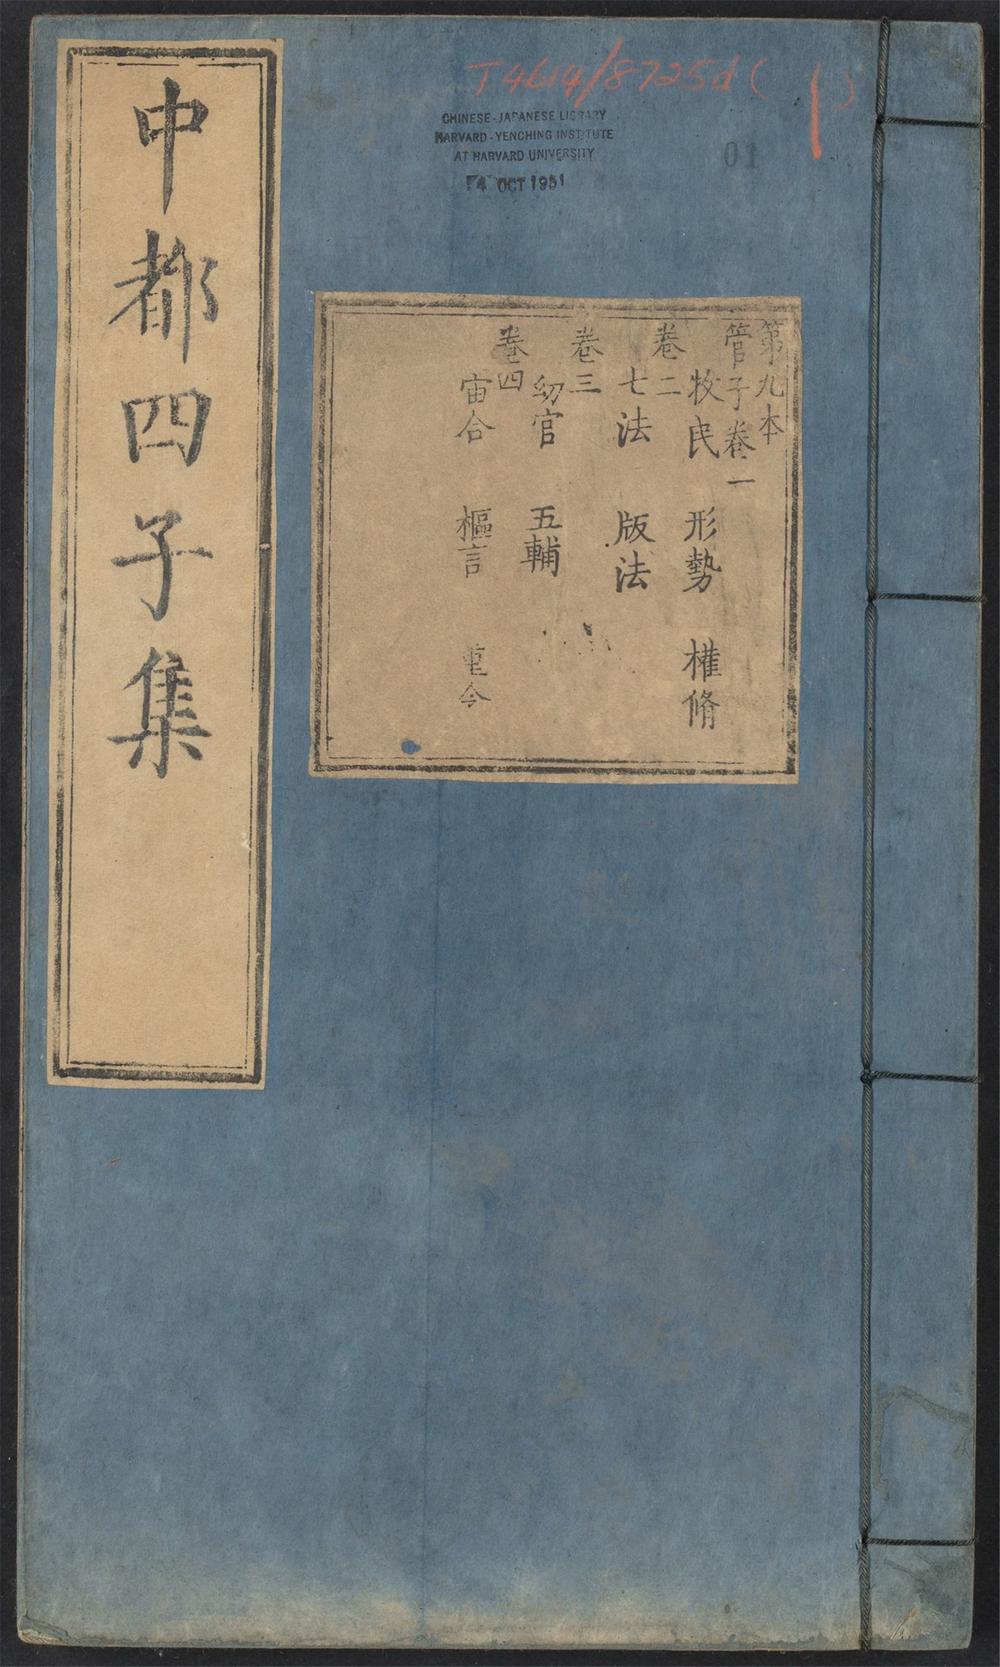 T4614/8725d (1)
CHINESE-JAPANESE LIBRARY
HARVARD-YENCHING INSTITUTE
AT HARVARD UNIVERSITY
14 OCT 1951
01
第九本
管子卷一
牧民 形勢 權脩
卷二
七法 版法
卷三
幼官 五輔
卷四
宙合 樞言 重令
中都四子集